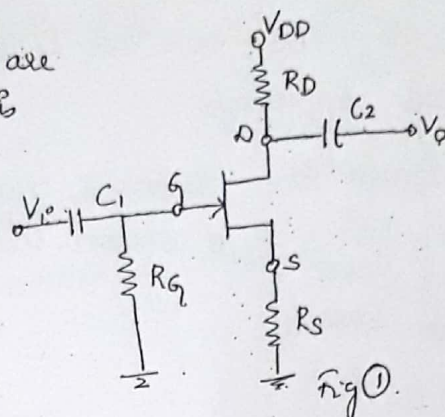 are
VDD
RD
D
C2
Vo
Vi
C1
G
RG
S
RS
Fig ①.